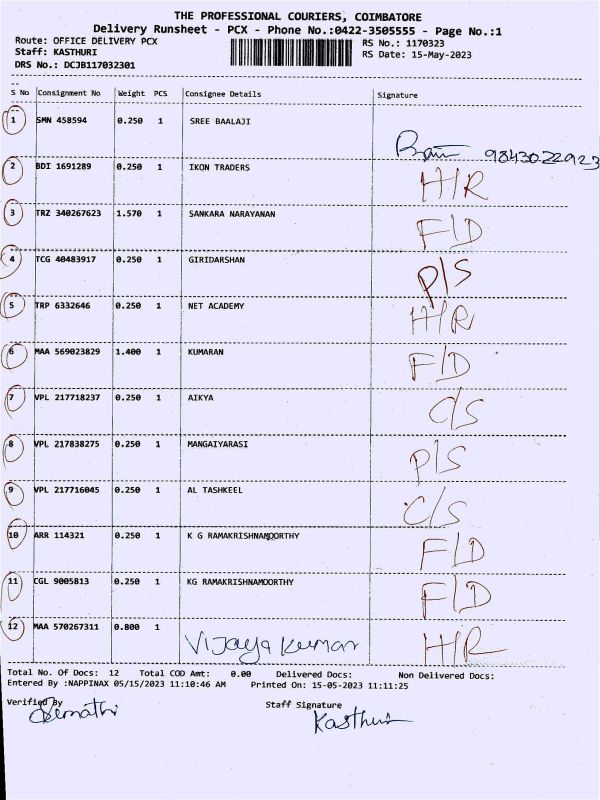 THE PROFESSIONAL COURIERS, COIMBATORE
Delivery Runsheet - PCX - Phone No.:0422-3505555 - Page No.:1
Route: OFFICE DELIVERY PCX RS No.: 1170323
Staff: KASTHURI RS Date: 15-May-2023
DRS No.: DCJB117032301
S No Consignment No Weight PCS Consignee Details Signature
1 SMN 458594 0.250 1 SREE BAALAJI
9843022923
2 BDI 1691289 0.250 1 IKON TRADERS H/R
3 TRZ 340267623 1.570 1 SANKARA NARAYANAN F/D
4 TCG 40483917 0.250 1 GIRIDARSHAN P/S
5 TRP 6332646 0.250 1 NET ACADEMY H/R
6 MAA 569023829 1.400 1 KUMARAN F/D
7 VPL 217718237 0.250 1 AIKYA C/S
8 VPL 217838275 0.250 1 MANGAIYARASI P/S
9 VPL 217716045 0.250 1 AL TASHKEEL C/S
10 ARR 114321 0.250 1 K G RAMAKRISHNAMOORTHY F/D
11 CGL 9005813 0.250 1 KG RAMAKRISHNAMOORTHY F/D
12 MAA 570267311 0.800 1 Vijaya Kumar H/R
Total No. Of Docs: 12 Total COD Amt: 0.00 Delivered Docs: Non Delivered Docs:
Entered By :NAPPINAX 05/15/2023 11:10:46 AM Printed On: 15-05-2023 11:11:25
Verified By Staff Signature
Kasthuri